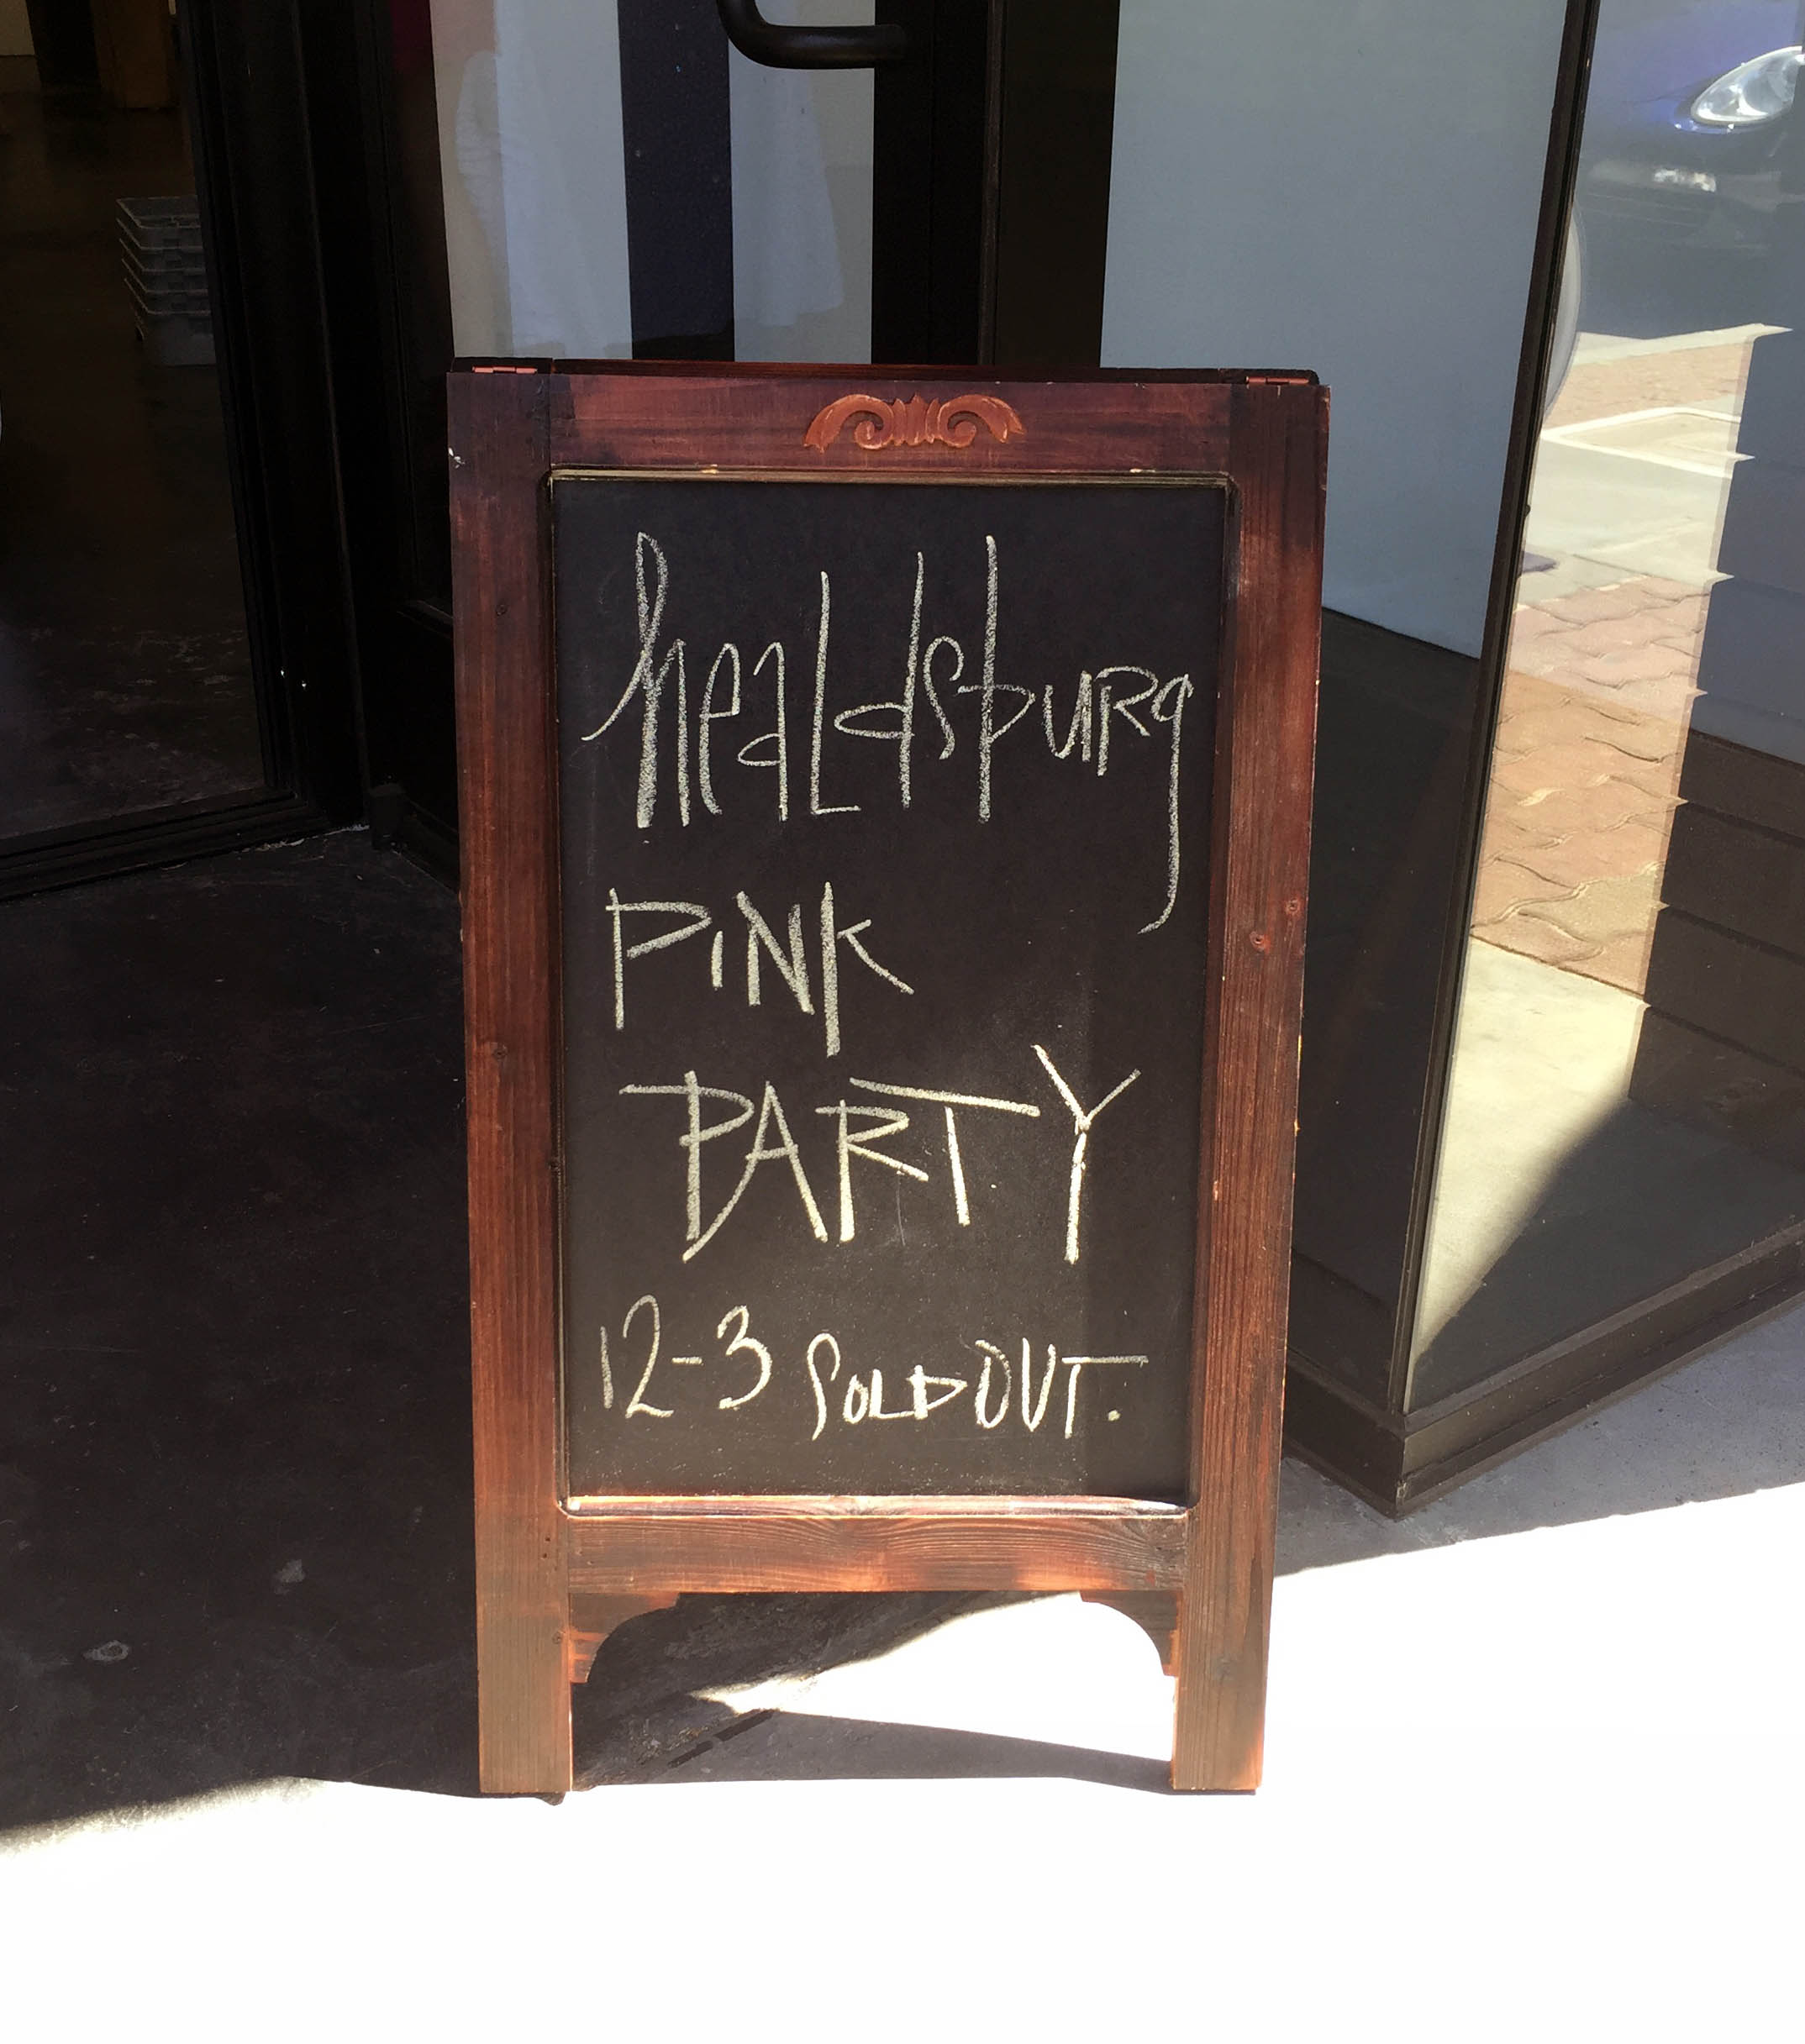 healdsburg
PiNK
PARTY
12-3 SOLD OUT.